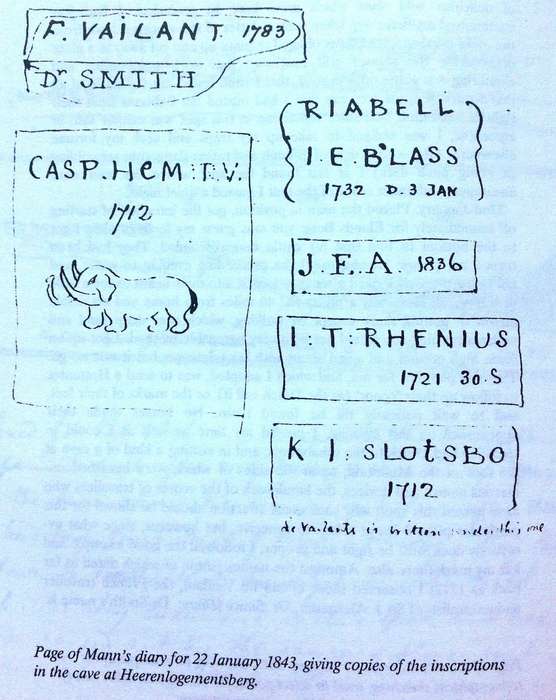 F. VAILANT 1783
Dr SMITH
CASP. HEM : T. V.
1712
RIABELL
I. E. BLASS
1732 D. 3 JAN
J. E. A. 1836
I : T : RHENIUS
1721 30. S
K I : SLOtSBO
1712
de vailants is written under this one
Page of Mann's diary for 22 January 1843, giving copies of the inscriptions
in the cave at Heerenlogementsberg.